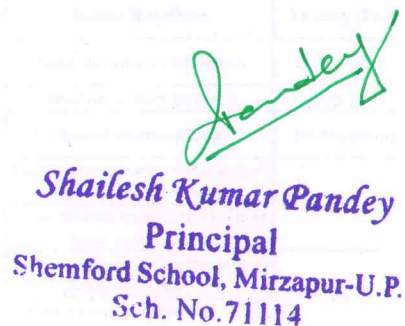 Pandey
Shailesh Kumar Pandey
Principal
Shemford School, Mirzapur-U.P.
Sch. No.71114